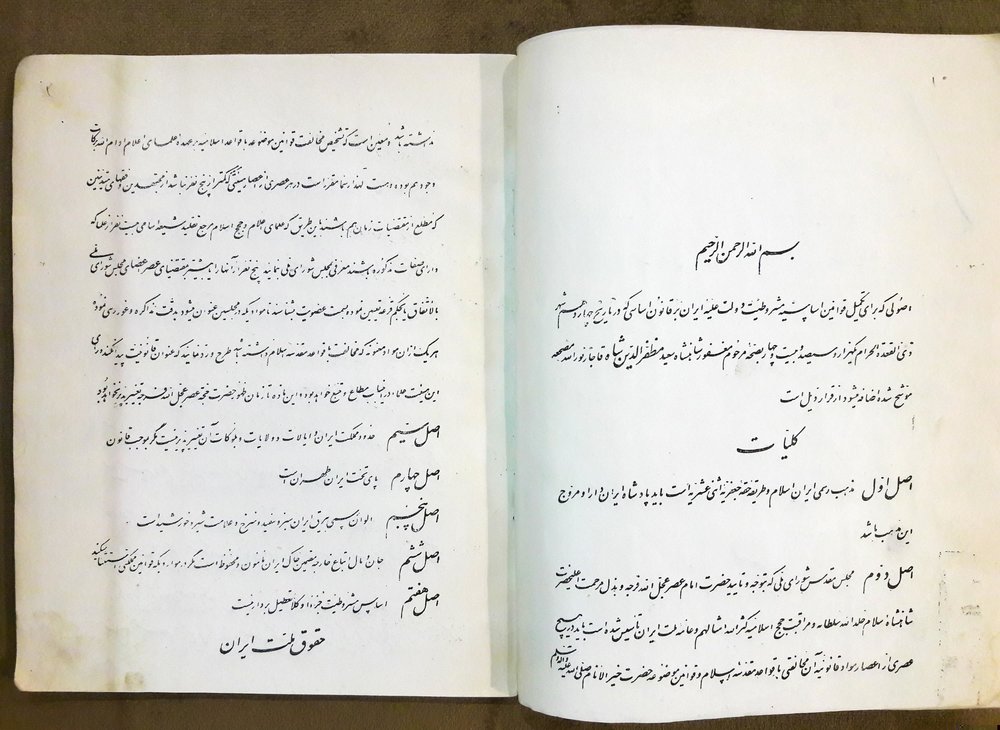 بسم الله الرحمن الرحیم
اصولی که برای تکمیل قوانین اساسیه مشروطیت دولت علیه ایران بر قانون اساسی که در تاریخ چهاردهم شهر
ذی القعدة الحرام یکهزار و سیصد و بیست و چهار بصحه مرحوم مغفور شاهنشاه سعید مظفرالدین شاه قاجار نورالله مضجعه
موشح شده اضافه میشود از قرار ذیل است
کلیات
اصل اول مذهب رسمی ایران اسلام و طریقه حقه جعفریه اثنی عشریه است باید پادشاه ایران دارا و مروج
این مذهب باشد
اصل دوم مجلس مقدس شورای ملی که بتوجه و تایید حضرت امام عصر عجل الله فرجه و بذل مرحمت اعلیحضرت
شاهنشاه اسلام خلد الله سلطانه و مراقبت حجج اسلامیه کثر الله امثالهم و عامه ملت ایران تاسیس شده است باید در هیچ
عصری از اعصار مواد قانونیه آن مخالفتی با قواعد مقدسه اسلام و قوانین موضوعه حضرت خیر الانام صلی الله علیه و آله و سلم
نداشته باشد و معین است که تشخیص مخالفت قوانین موضوعه با قواعد اسلامیه بر عهده علمای اعلام ادام الله برکات
وجودهم بوده و هست لهذا رسما مقرر است در هر عصری از اعصار هیئتی که کمتر از پنج نفر نباشد از مجتهدین و فقهای متدینین
که مطلع از مقتضیات زمان هم باشند باین طریق که علمای اعلام و حجج اسلام مرجع تقلید شیعه اسامی بیست نفر از علما که
دارای صفات مذکوره باشند معرفی بمجلس شورای ملی نمایند پنج نفر از آنها را یا بیشتر بمقتضای عصر اعضای مجلس شورای ملی
بالاتفاق یا بحکم قرعه تعیین نموده بسمت عضویت بشناسند تا موادیکه در مجلسین عنوان میشود بدقت مذاکره و غوررسی نموده
هر یک از آن مواد معنونه که مخالفت با قواعد مقدسه اسلام داشته باشد طرح و رد نمایند که عنوان قانونیت پیدا نکند و رای
این هیئت علماء در این باب مطاع و متبع خواهد بود و این ماده تا زمان ظهور حضرت حجة عصر عجل الله فرجه تغییر پذیر نخواهد بود
اصل سیم حدود مملکت ایران و ایالات و ولایات و بلوکات آن تغییر پذیر نیست مگر بموجب قانون
اصل چهارم پای تخت ایران طهران است
اصل پنجم الوان رسمی بیرق ایران سبز و سفید و سرخ و علامت شیر و خورشید است
اصل ششم جان و مال اتباع خارجه مقیمین خاک ایران مامون و محفوظ است مگر در مواردیکه قوانین مملکتی استثنا میکند
اصل هفتم اساس مشروطیت جزءا و کلا تعطیل بردار نیست
حقوق ملت ایران